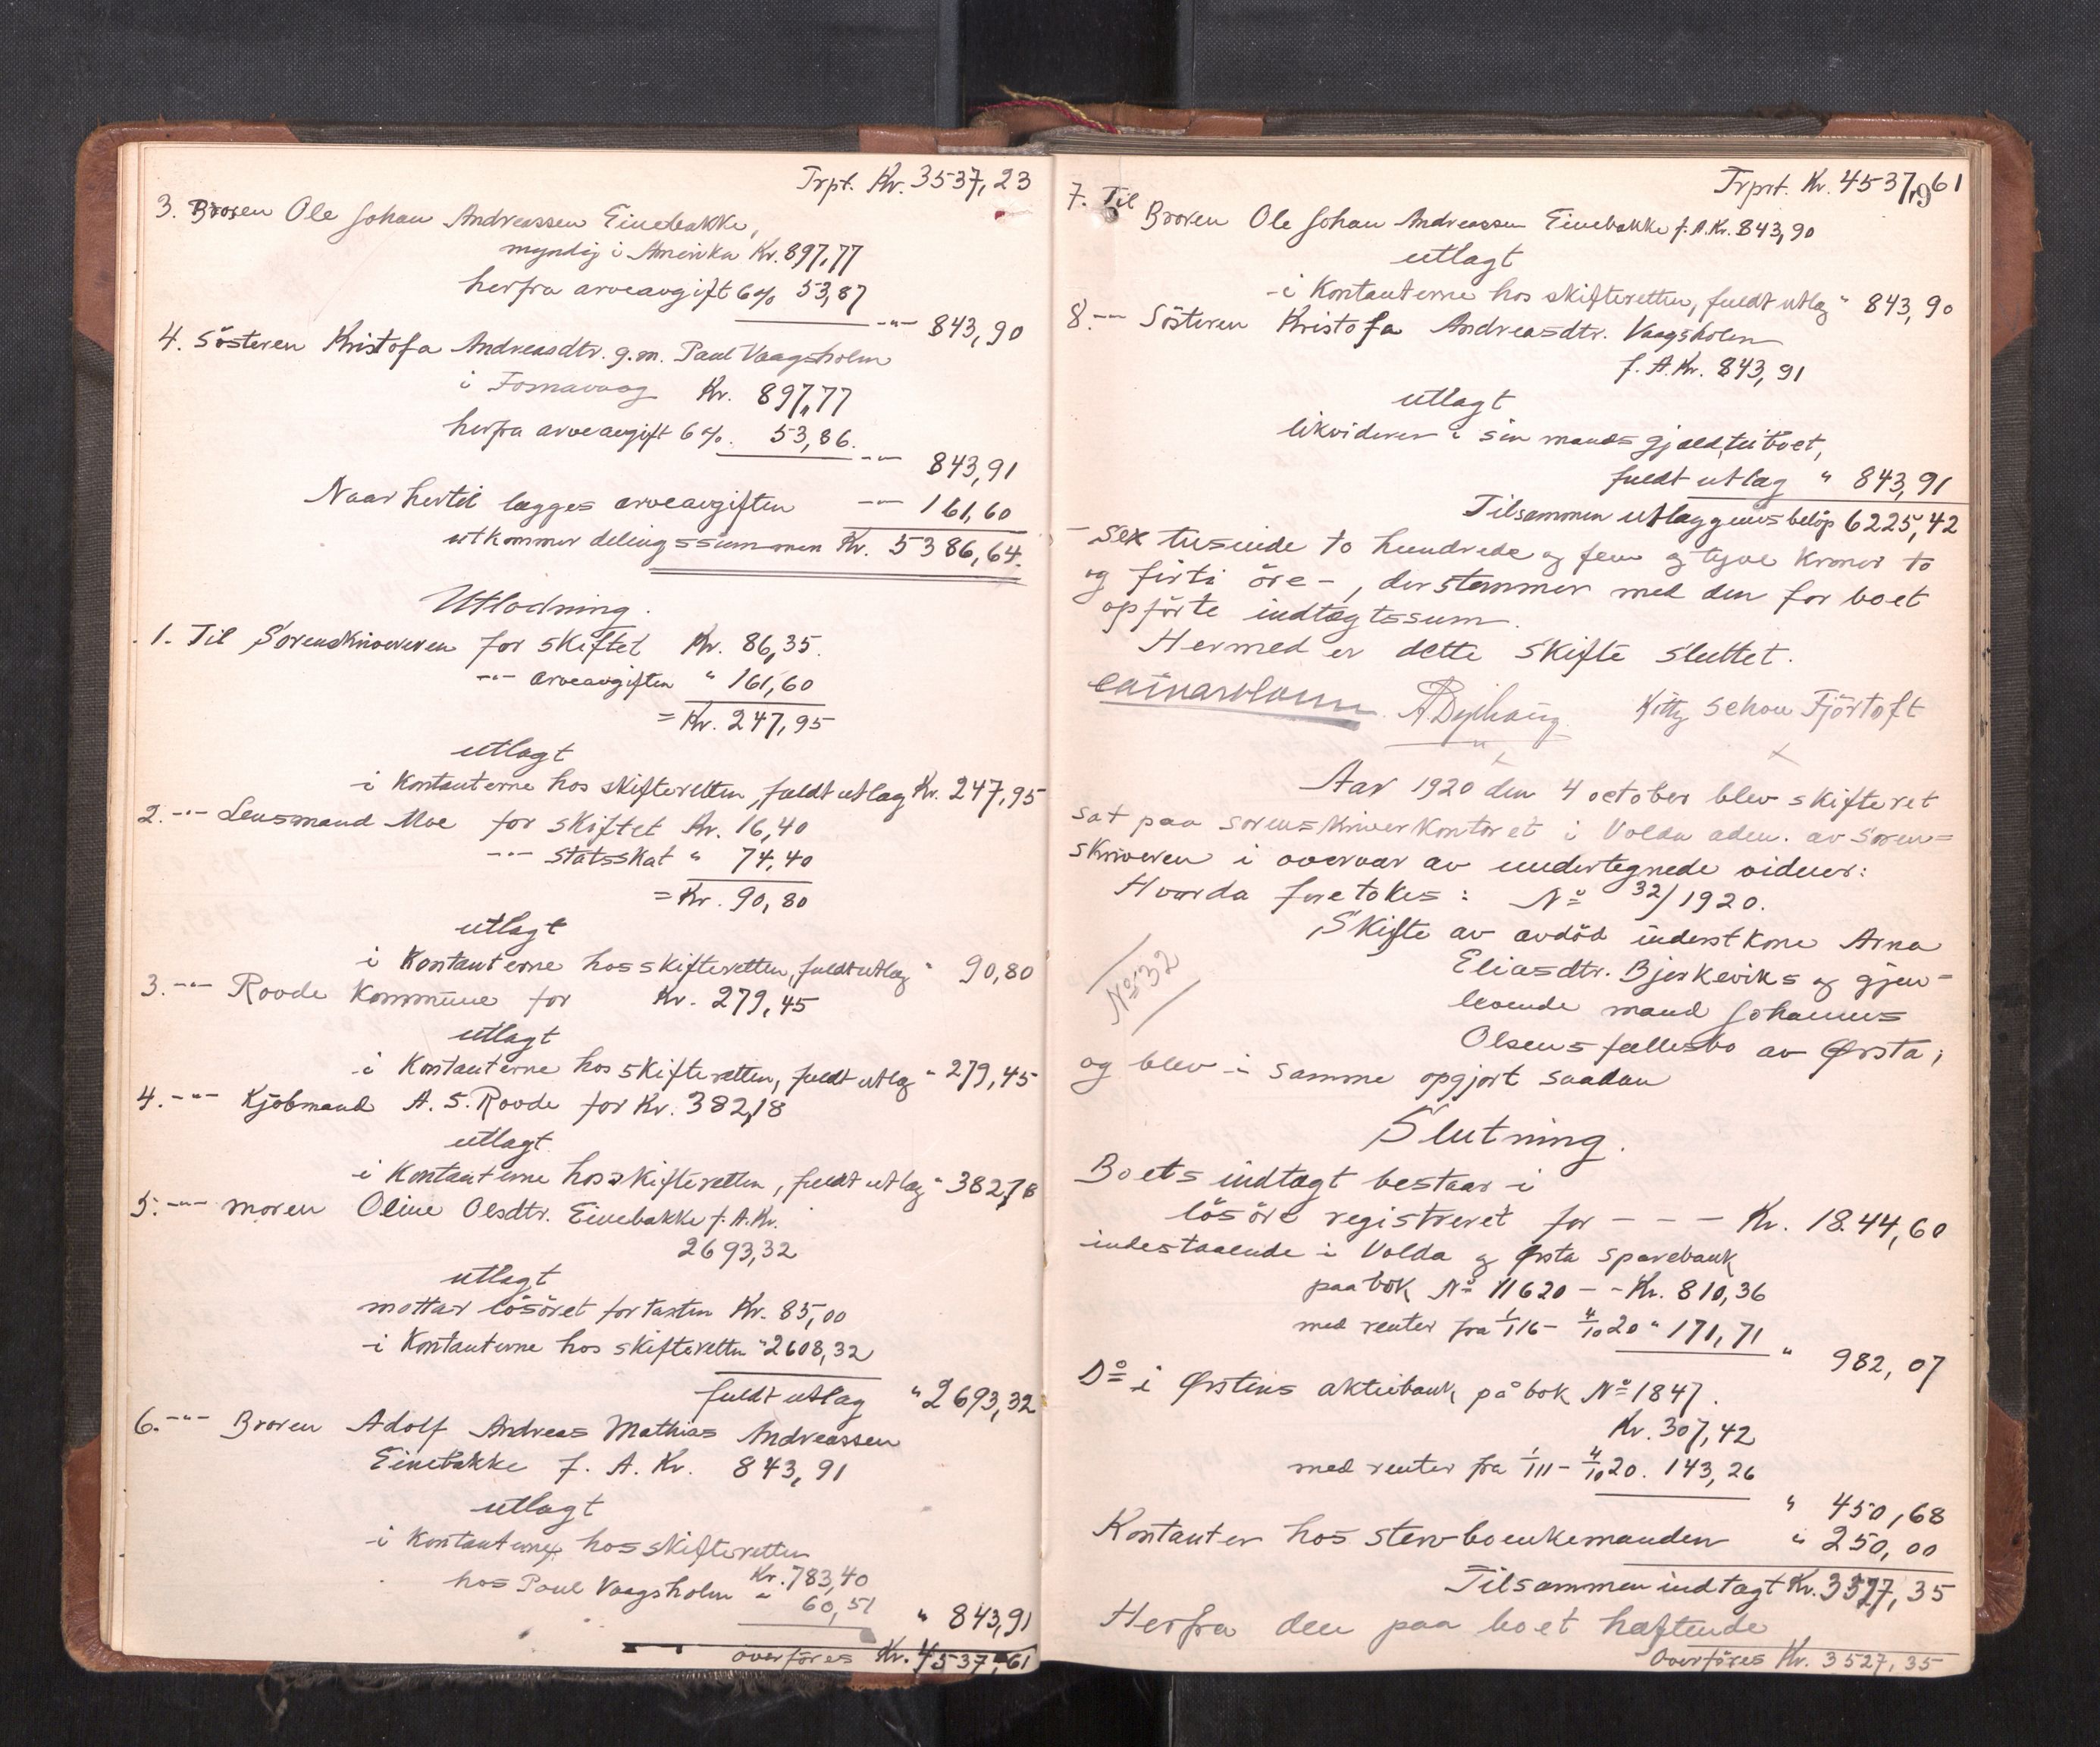 Trpt. Kr. 3537,23
3. Broren Ole Johan Andreassen Einebakke,
myndig i Amerika Kr. 897,77
herfra arveavgift 6% 53,87
-"- 843,90
4. Søsteren Kristofa Andreasdtr. g.m. Paul Vaagsholm
i Fosnavaag Kr. 897,77
herfra arveavgift 6%. 53,86.
-"- 843,91
Naar hertil lægges arveavgiften -"- 161,60
utkommer delingssummen Kr. 5386,64.
Utlodning.
1. Til Sorenskriveren for skiftet Kr. 86,35.
-"- arveavgiften " 161,60
= Kr. 247,95
utlagt
i Kontanterne hos skifteretten, fuldt utlæg Kr. 247,95
2. -"- Lensmand Moe for skiftet Kr. 16,40
-"- statsskat " 74,40
= Kr. 90,80
utlagt
i Kontanterne hos skifteretten, fuldt utlæg " 90,80
3. -"- Rovde Kommune for Kr. 279,45
utlagt
i Kontanterne hos skifteretten, fuldt utlæg " 279,45
4. -"- Kjøbmand A. S. Rovde for Kr. 382,18
utlagt
i Kontanterne hos skifteretten, fuldt utlæg " 382,18
5. -"- moren Oline Olsdtr. Einebakke f. A. Kr.
2693,32
utlagt
mottar løsøret for taxten Kr. 85,00
i Kontanterne hos skifteretten " 2608,32
fuldt utlæg " 2693,32
6. -"- Broren Adolf Andreas Mathias Andreassen
Einebakke f. A. Kr. 843,91
utlagt
i Kontanterne hos skifteretten
Kr. 783,40
hos Paul Vaagsholm " 60,51
" 843,91
overføres Kr. 4537,61
Trprt. Kr. 4537,61
7. Til Broren Ole Johan Andreassen Einebakke f. A. Kr. 843,90
utlagt
i Kontanterne hos skifteretten, fuldt utlæg " 843,90
8. -"- Søsteren Kristofa Andreasdtr. Vaagsholm
f. A. Kr. 843,91
utlagt
likviderer i sin mands gjæld til boet,
fuldt utlæg " 843,91
Tilsammen utlæggenes beløp 6225,42
- Sex tusinde to hundrede og fem og tyve kroner to
og firti øre -, der stemmer med den for boet
opførte indtægtssum.
Hermed er dette skifte sluttet.
Kitty Schou Fjørtoft
Aar 1920 den 4 october blev skifteret
sat paa sorenskriverkontoret i Volda adm. av soren=
skriveren i overvær av undertegnede vidner:
Hvorda foretokes: No 32/1920.
Skifte av avdød inderstkone Arna
Eliasdtr. Bjerkeviks og gjen=
No 32
levende mand Johannes
Olsens fællesbo av Ørsta;
og blev i samme opgjort saadan
Slutning.
Boets indtægt bestaar i
løsøre registreret for - - - Kr. 1844,60
indestaaende i Volda og Ørsta sparebank
paa bok No 11620 - - Kr. 810,36
med renter fra 1/1 16 - 4/10 20 " 171,71
" 982,07
Do i Ørstens aktiebank på bok No 1847.
Kr. 307,42
med renter fra 1/1 11 - 4/10 20. 143,26
" 450,68
Kontanter hos stervboenkemanden " 250,00
Tilsammen indtægt Kr. 3527,35
Herfra den paa boet hæftende
Overføres Kr. 3527,35